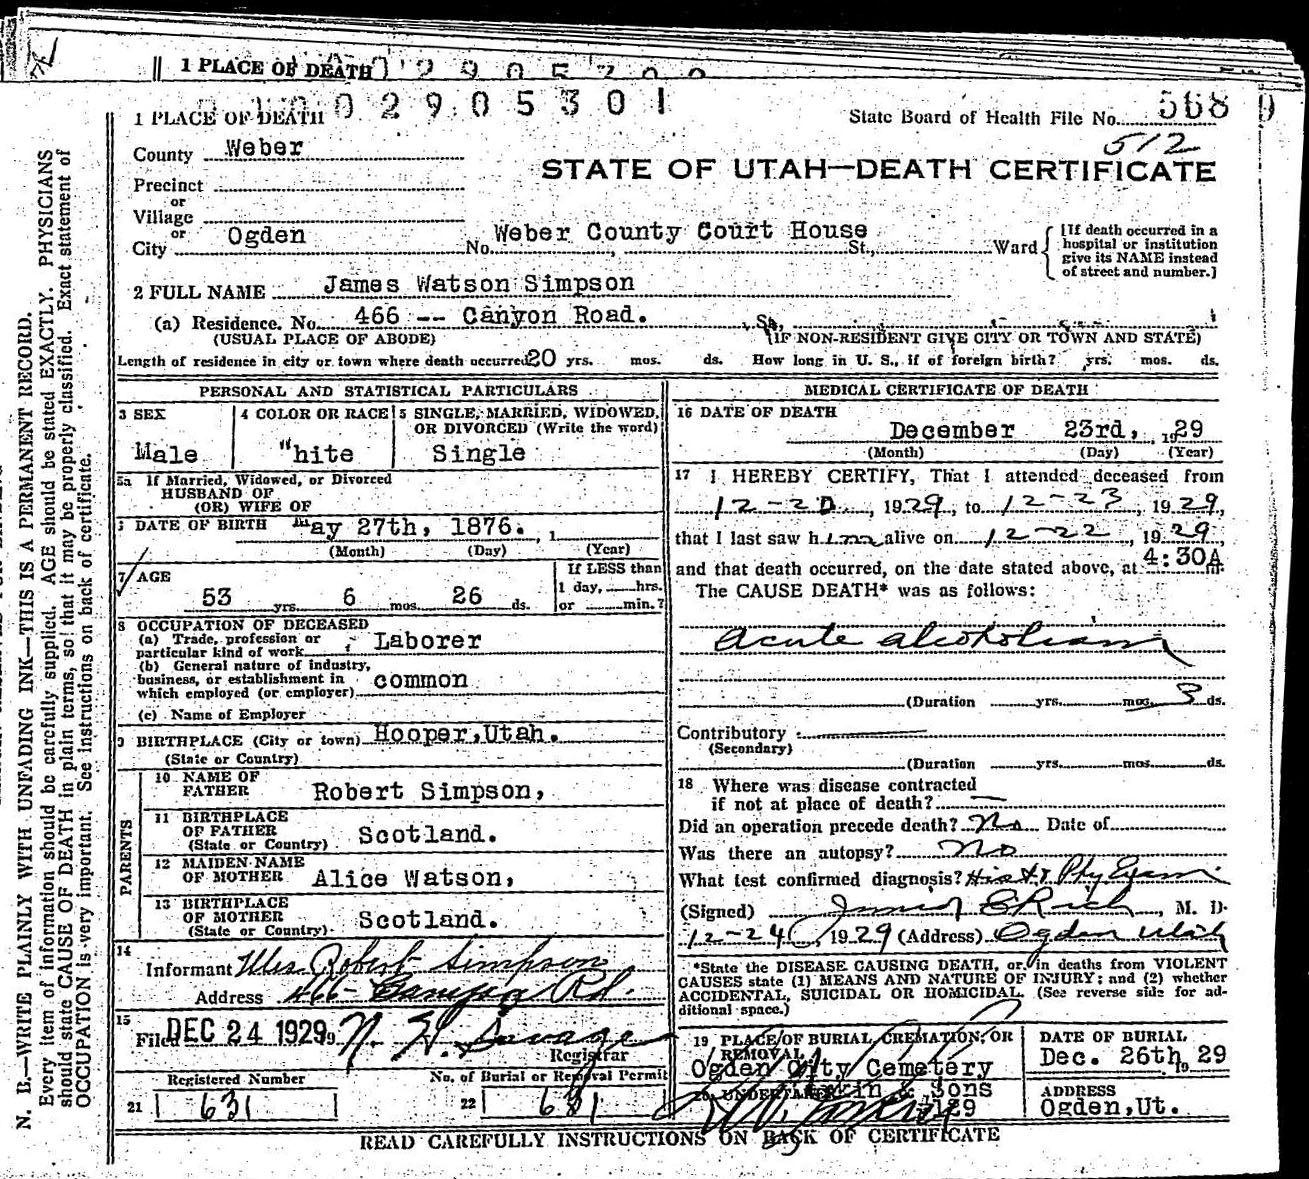 1 PLACE OF DEATH
0 2 9 0 5 3 0 1
1 PLACE OF DEATH
State Board of Health File No. 568
512
County Weber
STATE OF UTAH—DEATH CERTIFICATE
Precinct
or
Village
or
City Ogden No. Weber County Court House St., Ward
[If death occurred in a
hospital or institution
give its NAME instead
of street and number.]
2 FULL NAME James Watson Simpson
(a) Residence. No. 466 -- Canyon Road. St.
(USUAL PLACE OF ABODE) (IF NON-RESIDENT GIVE CITY OR TOWN AND STATE)
Length of residence in city or town where death occurred 20 yrs. mos. ds. How long in U. S., if of foreign birth? yrs. mos. ds.
PERSONAL AND STATISTICAL PARTICULARS
3 SEX
Male
4 COLOR OR RACE
"hite
5 SINGLE, MARRIED, WIDOWED,
OR DIVORCED (Write the word)
Single
5a If Married, Widowed, or Divorced
HUSBAND OF
(OR) WIFE OF
6 DATE OF BIRTH May 27th, 1876. , 1
(Month) (Day) (Year)
7 AGE
53 yrs. 6 mos. 26 ds.
If LESS than
1 day, hrs.
or min.?
8 OCCUPATION OF DECEASED
(a) Trade, profession or
particular kind of work Laborer
(b) General nature of industry,
business, or establishment in
which employed (or employer) common
(c) Name of Employer
9 BIRTHPLACE (City or town) Hooper,Utah.
(State or Country)
PARENTS
10 NAME OF
FATHER Robert Simpson,
11 BIRTHPLACE
OF FATHER
(State or Country) Scotland.
12 MAIDEN NAME
OF MOTHER Alice Watson,
13 BIRTHPLACE
OF MOTHER
(State or Country) Scotland.
14
Informant Mrs Robert Simpson
Address 466 Canyon Rd.
15
Filed DEC 24 1929 N. H. Savage
Registrar
Registered Number
21 631
No. of Burial or Removal Permit
22 631
MEDICAL CERTIFICATE OF DEATH
16 DATE OF DEATH
December 23rd, 1929
(Month) (Day) (Year)
17 I HEREBY CERTIFY, That I attended deceased from
12-20, 1929, to 12-23, 1929,
that I last saw him alive on 12-22, 1929
and that death occurred, on the date stated above, at 4:30A m.
The CAUSE DEATH* was as follows:
acute alcoholism
(Duration yrs. mos. 3 ds.
Contributory
(Secondary)
(Duration yrs. mos. ds.
18 Where was disease contracted
if not at place of death? —
Did an operation precede death? No Date of
Was there an autopsy? No
What test confirmed diagnosis? Hist & Phy Exam
(Signed) E Rich, M. D.
12-24, 1929 (Address) Ogden Utah
*State the DISEASE CAUSING DEATH, or, in deaths from VIOLENT
CAUSES state (1) MEANS AND NATURE OF INJURY; and (2) whether
ACCIDENTAL, SUICIDAL OR HOMICIDAL. (See reverse side for ad-
ditional space.)
19 PLACE OF BURIAL, CREMATION, OR
REMOVAL
Ogden City Cemetery
DATE OF BURIAL
Dec. 26th 1929
20 UNDERTAKER & Sons
129
ADDRESS
Ogden,Ut.
READ CAREFULLY INSTRUCTIONS ON BACK OF CERTIFICATE
N. B.—WRITE PLAINLY WITH UNFADING INK—THIS IS A PERMANENT RECORD.
Every item of information should be carefully supplied. AGE should be stated EXACTLY. PHYSICIANS
should state CAUSE OF DEATH in plain terms, so that it may be properly classified. Exact statement of
OCCUPATION is very important. See instructions on back of certificate.